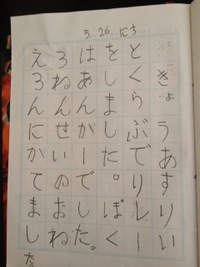 5. 26. にち
きょうあすりー
とくらぶでりレー
をしました。ぼく
はあんかーでした。
3ねんせいのおね
えさんにかてまし
た